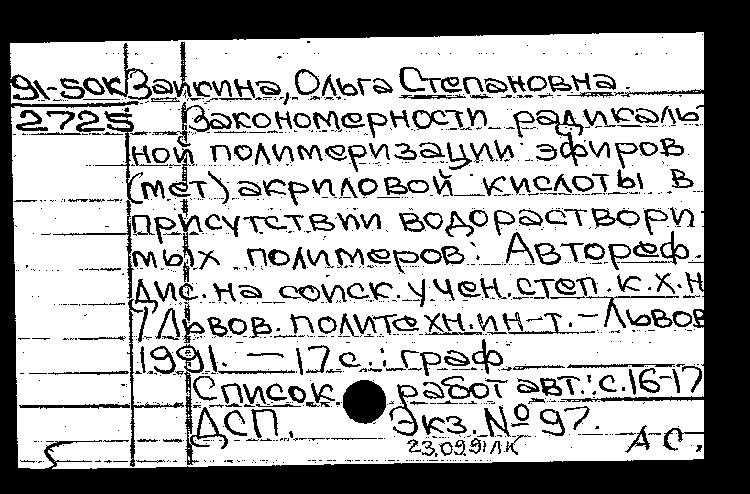 91-50к Заикина, Ольга Степановна.
2725 Закономерности радикаль-
ной полимеризации эфиров
(мет)акриловой кислоты в
присутствии водораствори-
мых полимеров: Автореф.
дис. на соиск. учен. степ. к.х.н
/Львов. политехн. ин-т. - Львов
1991. — 17 с.: граф
Список работ авт.: с. 16-17
ДСП. Экз. № 97.
23.09.91 ЛК АС.